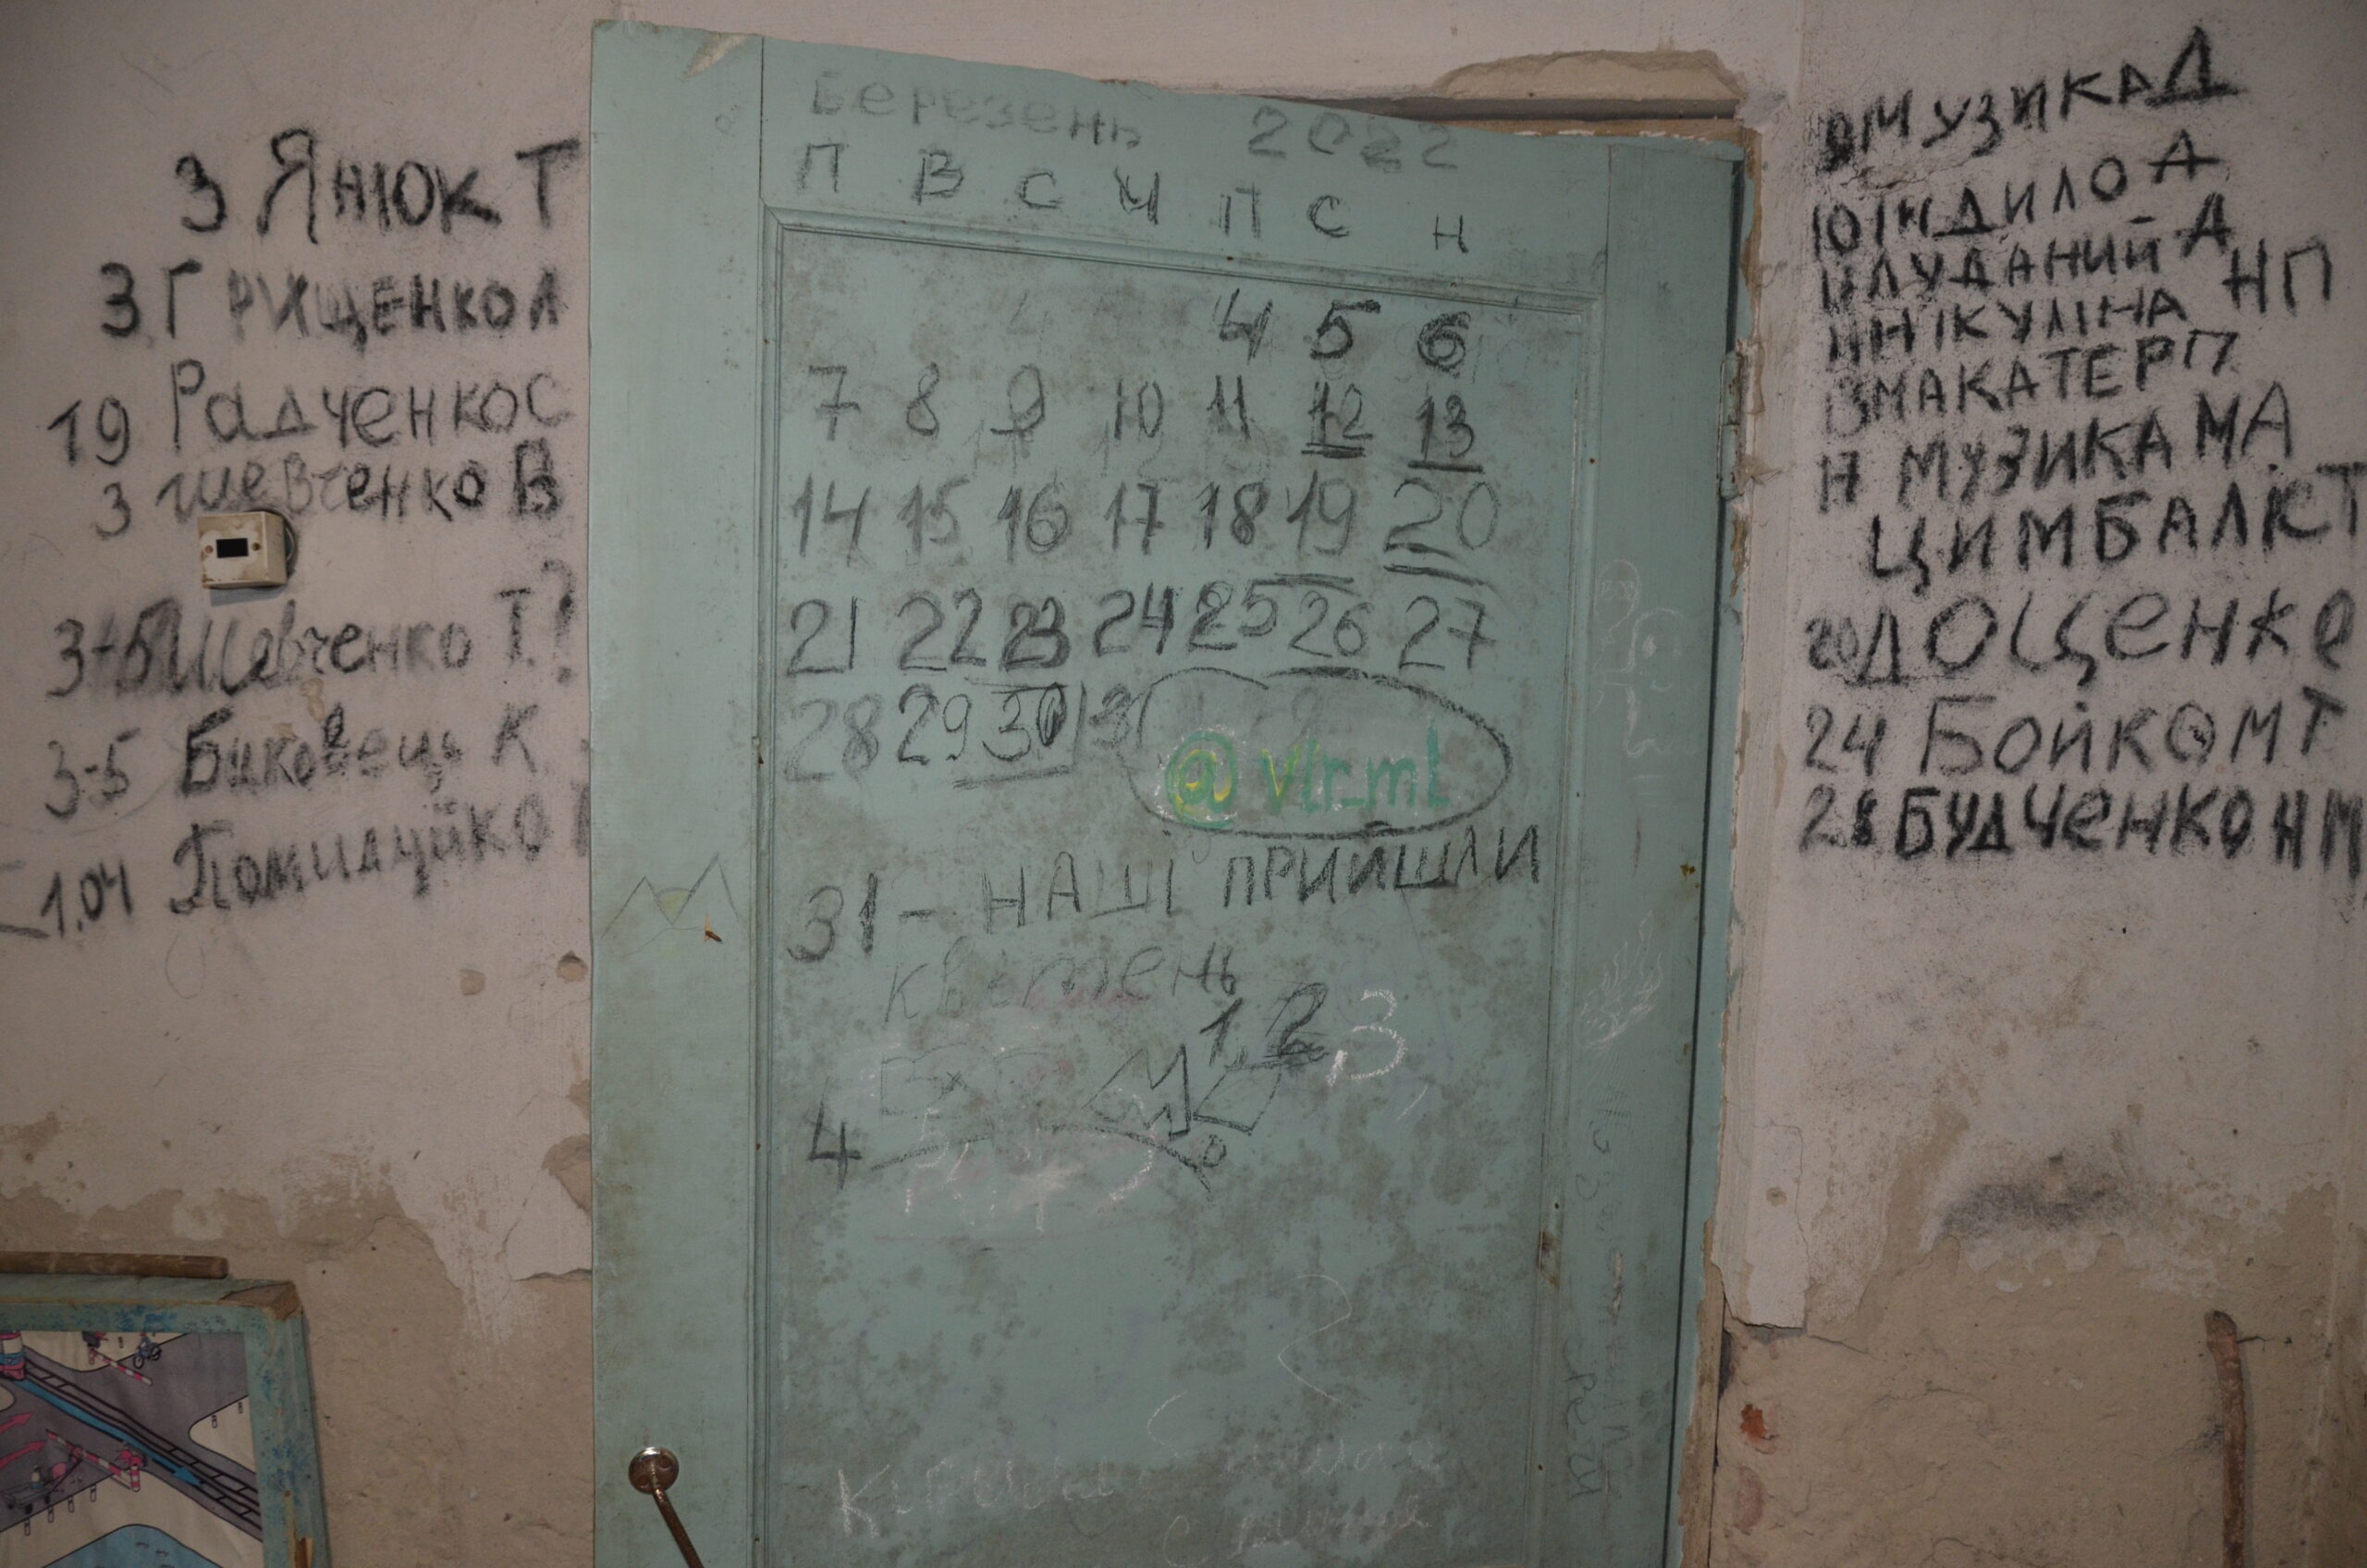 3 Янюк Т
3 Грищенко Л
19 Радченко С
3 Шевченко В
3-5 Шевченко Т?
3-5 Биковець К
1.04
Березень 2022
П В С Ч П С Н
4 5 6
7 8 9 10 11 12 13
14 15 16 17 18 19 20
21 22 23 24 25 26 27
28 29 30 31
@vlr_ml
31 - НАШІ ПРИЙШЛИ
квітень
1, 2, 3
4
9 МУЗИКА Д
10 ІНДИЛО А
11 ЛУДАНИЙ А
11 НІКУЛІНА НП
13 МАКАТЕР П
Н МУЗИКА МА
ЦИМБАЛЮК Т
20 ДОЩЕНКО
24 БОЙКО МТ
28 БУДЧЕНКО НМ